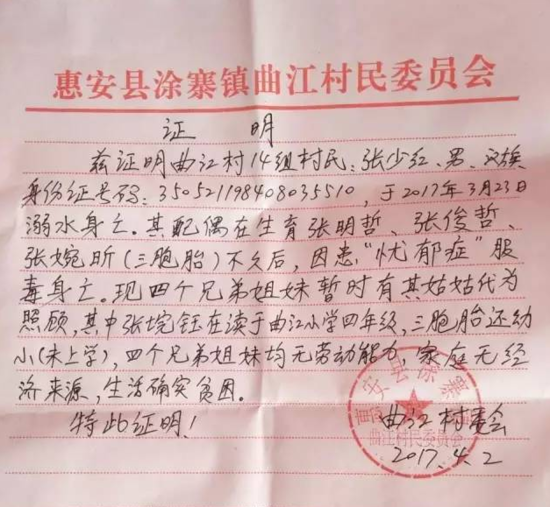 惠安县涂寨镇曲江村民委员会
证 明
兹证明曲江村14组村民:张少红、男、汉族
身份证号码:350521198408035510,于2017年3月23日
溺水身亡。其配偶在生育张明哲、张俊哲、
张婉昕(三胞胎)不久后,因患“忧郁症”服
毒身亡。现四个兄弟姐妹暂时有其姑姑代为
照顾,其中张婉钰在读于曲江小学四年级,三胞胎还幼
小(未上学),四个兄弟姐妹均无劳动能力,家庭无经
济来源,生活确实贫困。
特此证明!
曲江村委会
2017.4.2
惠安县涂寨镇
曲江村民委员会